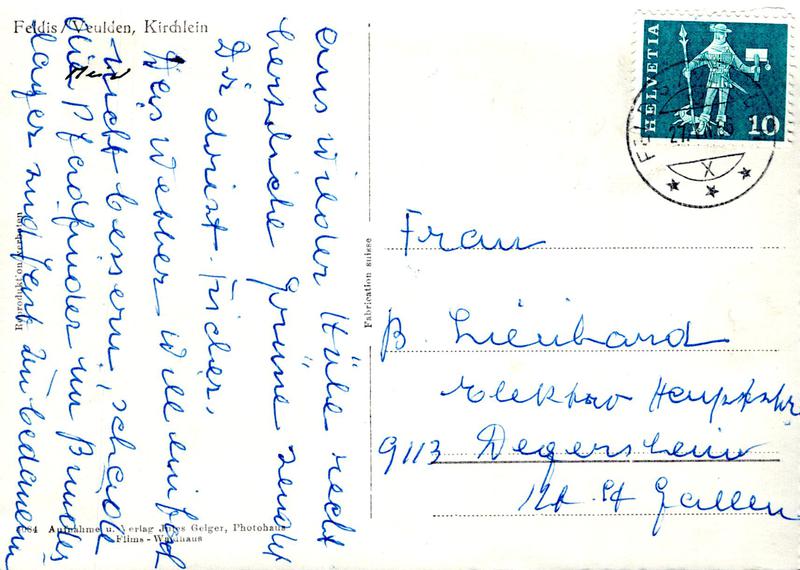 Feldis / Veulden, Kirchlein
aus wilder Höhe recht
herzliche Grüsse sendet
Dir
Das Wetter will einfach
nicht bessern, schade
die Pfadfinder im Bundes
lager sind fast zu bedauern
Reproduktion verboten
4084 Aufnahme u. Verlag Jules Geiger, Photohaus
Flims - Waldhaus
Fabrication suisse
HELVETIA
10
Frau
B. Lienhard
Elektro Hauptstr
9113 Degersheim
Kt. St Gallen